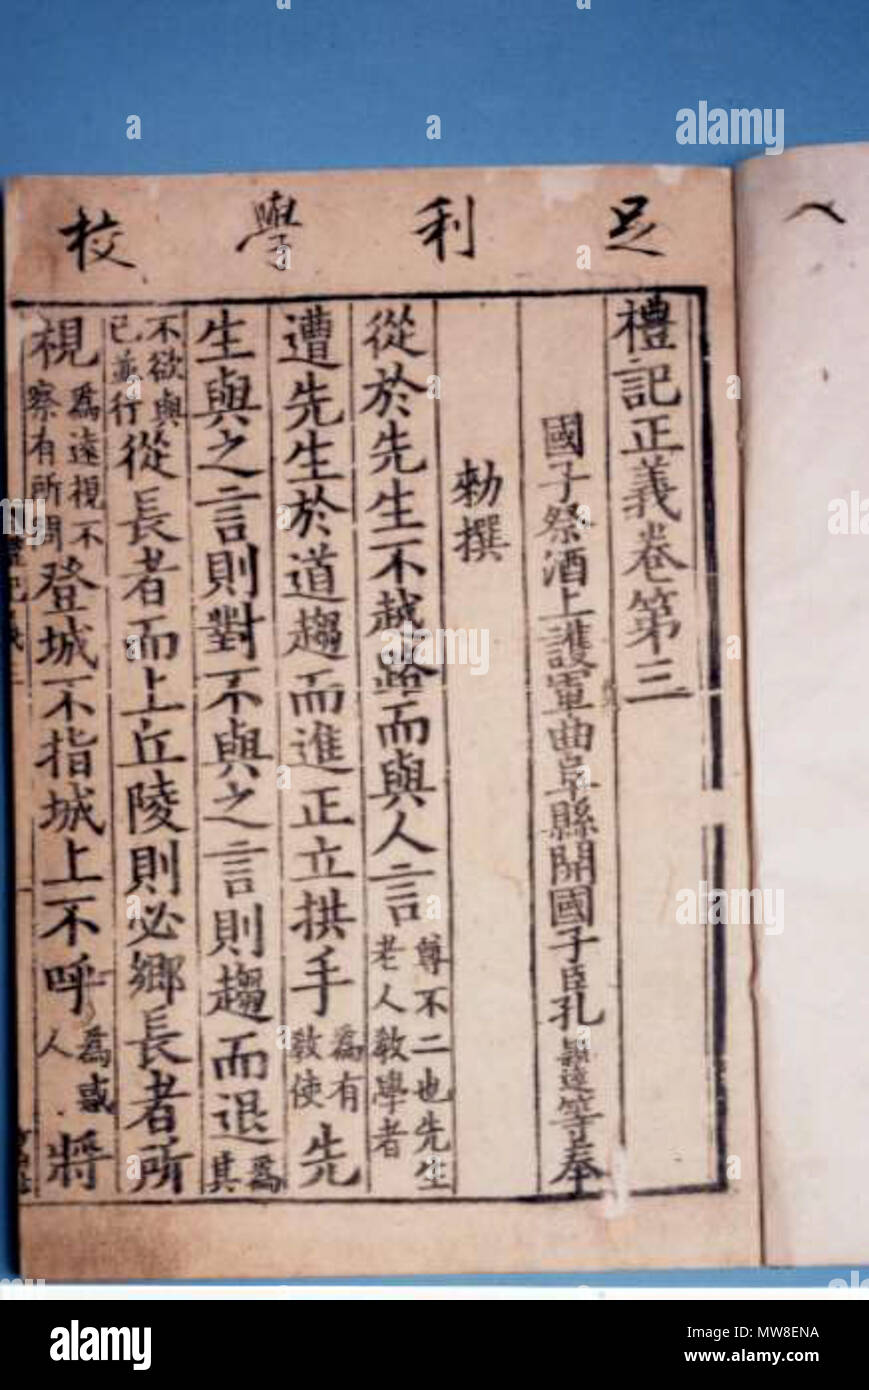 足利學校
禮記正義卷第三
國子祭酒上護軍曲阜縣開國子臣孔穎達等奉
勑撰
從於先生不越路而與人言尊不二也先生老人教學者
遭先生於道趨而進正立拱手為有教使先
生與之言則對不與之言則趨而退為其
不欲與已並行從長者而上丘陵則必鄉長者所
視為遠視不察有所問登城不指城上不呼為惑人將
alamy
Image ID: MW8ENA
www.alamy.com